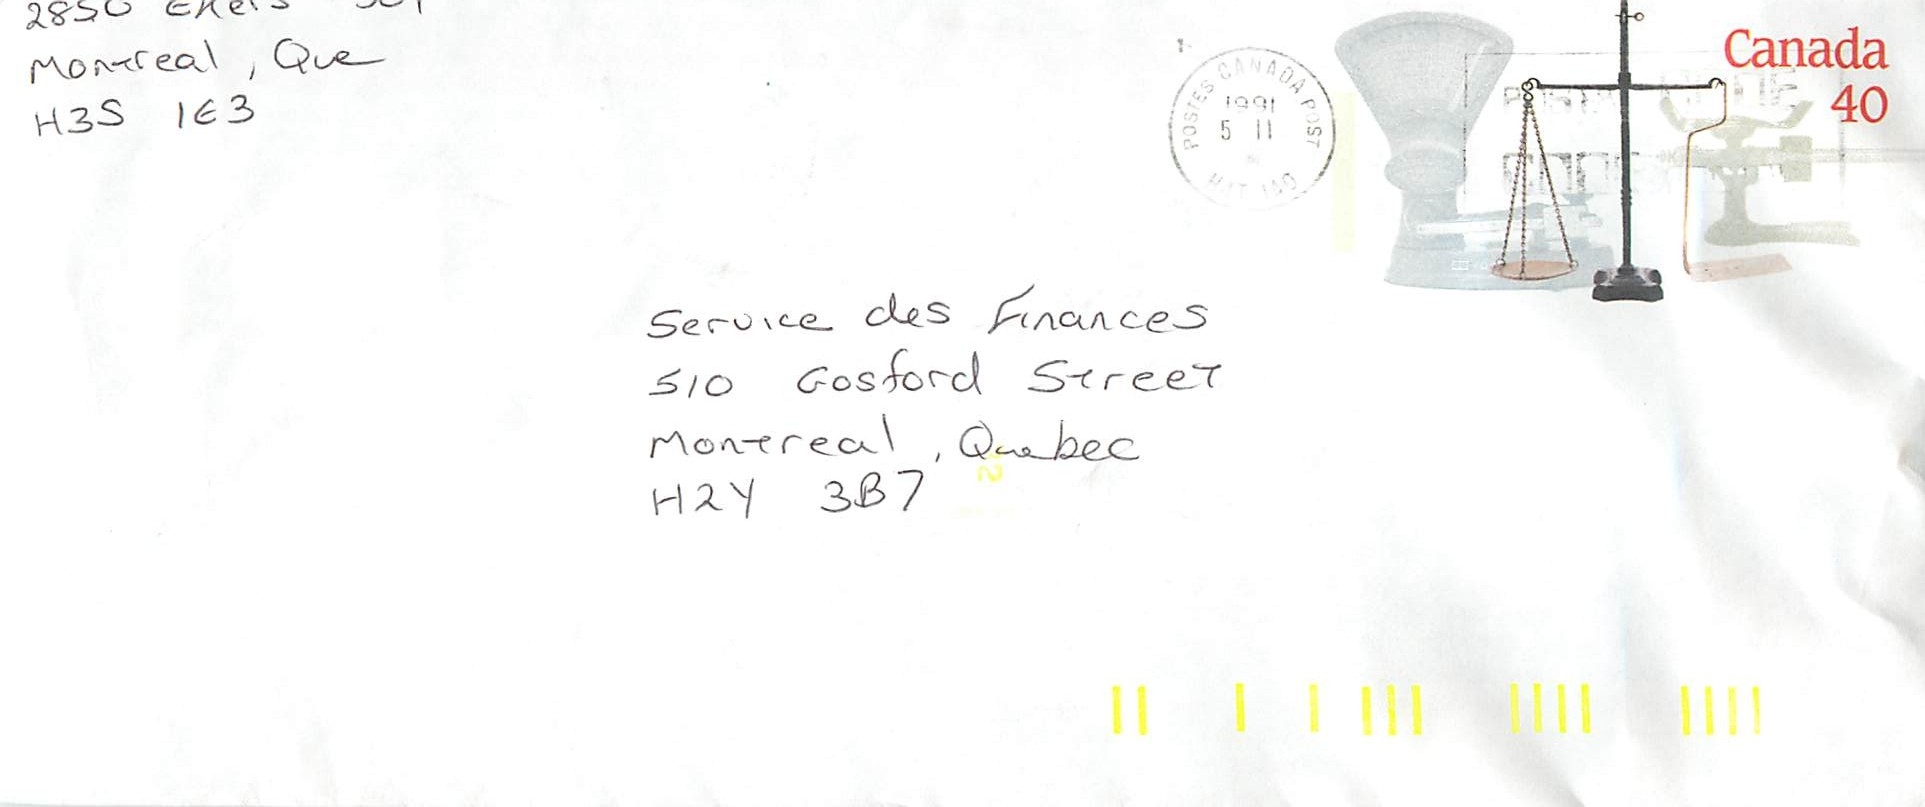 2850 Ekers
Montreal, Que
H3S 1E3
POSTES CANADA POST
1991
5 11
Canada
40
Service des Finances
510 Gosford Street
Montreal, Quebec
H2Y 3B7